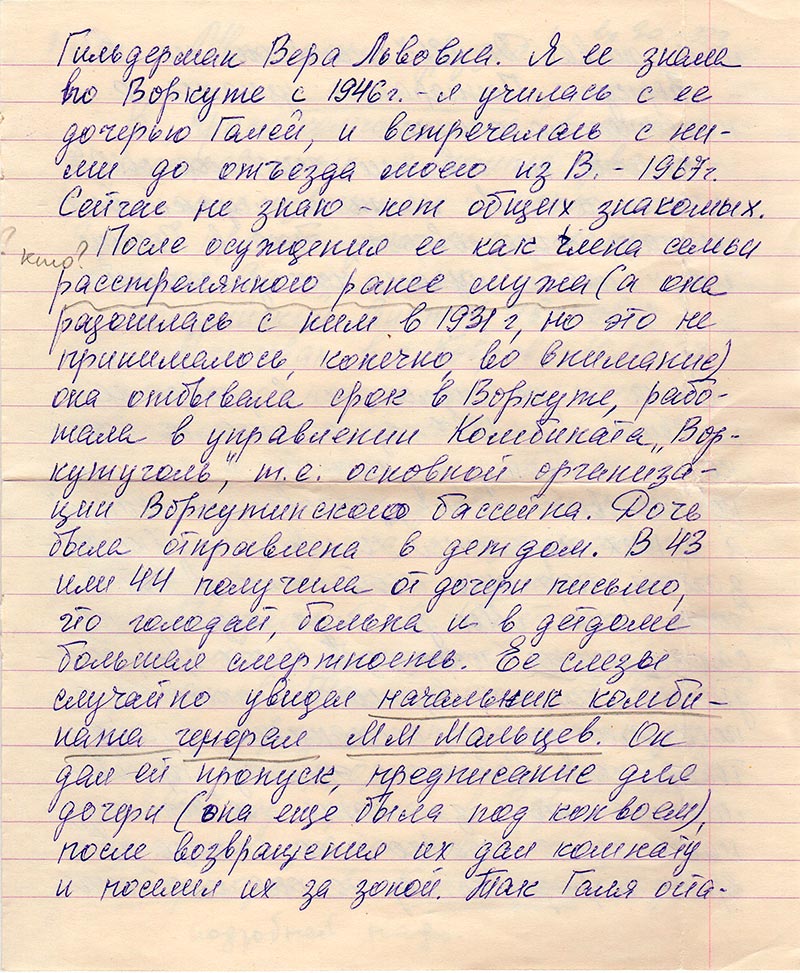 Гильдерман Вера Львовна. Я ее знала
по Воркуте с 1946г. - я училась с ее
дочерью Галей, и встречалась с ни-
ми до отъезда моего из В. - 1967г.
Сейчас не знаю - нет общих знакомых.
? кто? После осуждения ее как члена семьи
расстрелянного ранее мужа (а она
разошлась с ним в 1931 г, но это не
принималось, конечно, во внимание)
она отбывала срок в Воркуте, рабо-
тала в управлении Комбината „Вор-
кутуголь", т.е. основной организа-
ции Воркутинского бассейна. Дочь
была отправлена в детдом. В 43
или 44 получила от дочери письмо,
что голодает, больна и в детдоме
большая смертность. Ее слезы
случайно увидел начальник комби-
ната генерал ММ Мальцев. Он
дал ей пропуск, предписание для
дочери (она еще была под конвоем),
после возвращения их дал комнату
и поселил их за зоной. Так Галя оста-